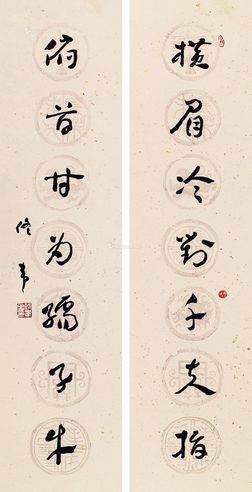 横眉冷對千夫指
俯首甘为孺子牛